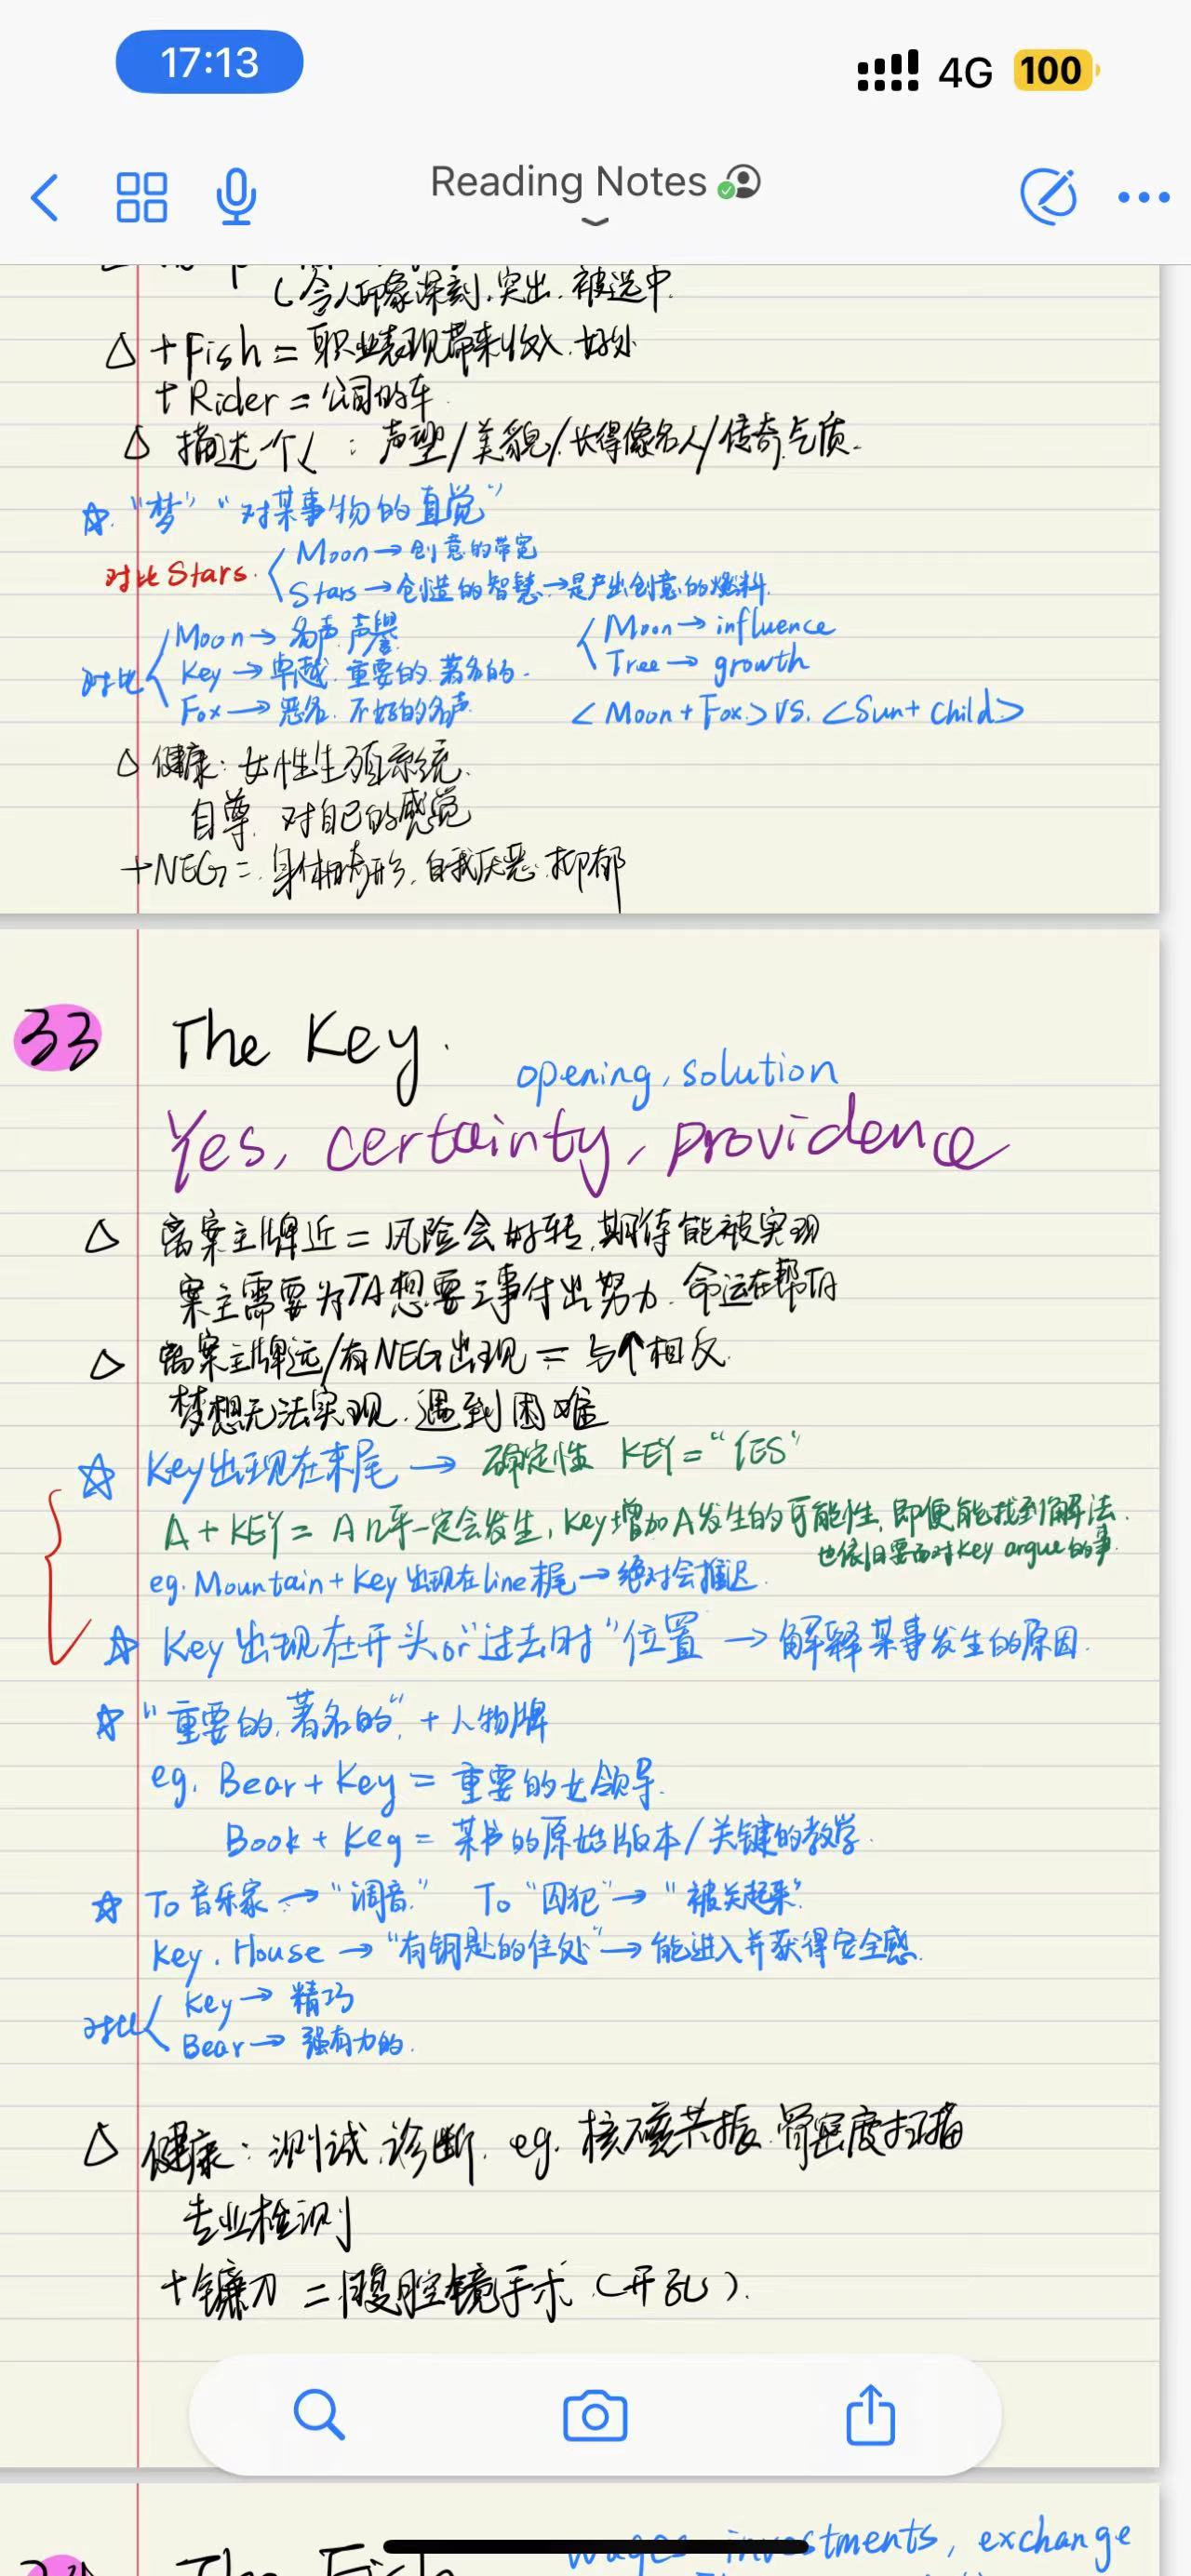 17:13
4G 100
Reading Notes
(令人印象深刻.突出.被选中.
△ +Fish = 职业表现带来收入.好处
+ Rider = 公司的车.
△ 描述个人：声望/美貌/长得像名人/传奇气质.
☆ "梦" "对某事物的直觉"
Moon → 创意的带宽
对比 Stars.
Stars → 创造的智慧 → 是产出创意的燃料.
Moon → 名声 声誉
Moon → influence
对比
Key → 卓越.重要的.著名的.
Tree → growth
Fox → 恶名.不好的名声.
<Moon + Fox> VS. <Sun + Child>
△ 健康：女性生殖系统.
自尊.对自己的感觉
+NEG = 身体畸形.自我厌恶.抑郁
33 The Key.
opening, solution
Yes, certainty, providence
△ 离案主牌近 = 风险会好转.期待能被实现
案主需要为TA想要之事付出努力.命运在帮TA
△ 离案主牌远/有NEG出现 = 与↑相反.
梦想无法实现.遇到困难
☆ Key出现在末尾 → 确定性 KEY = "YES"
A + KEY = A几乎一定会发生, Key增加A发生的可能性, 即便能找到解法.
也依旧要面对Key argue的事.
eg. Mountain + Key 出现在line末尾 → 绝对会推迟.
☆ Key 出现在开头 or "过去时"位置 → 解释某事发生的原因.
☆ "重要的,著名的" + 人物牌
eg. Bear + Key = 重要的女领导.
Book + Key = 某书的原始版本/关键的教学.
☆ To 音乐家 → "调音." To "囚犯" → "被关起来."
Key . House → "有钥匙的住处" → 能进入并获得安全感.
Key → 精巧
对比
Bear → 强有力的.
△ 健康：测试.诊断. eg. 核磁共振.骨密度扫描
专业检测
+镰刀 = 腹腔镜手术 (开孔).
investments, exchange
The Fish